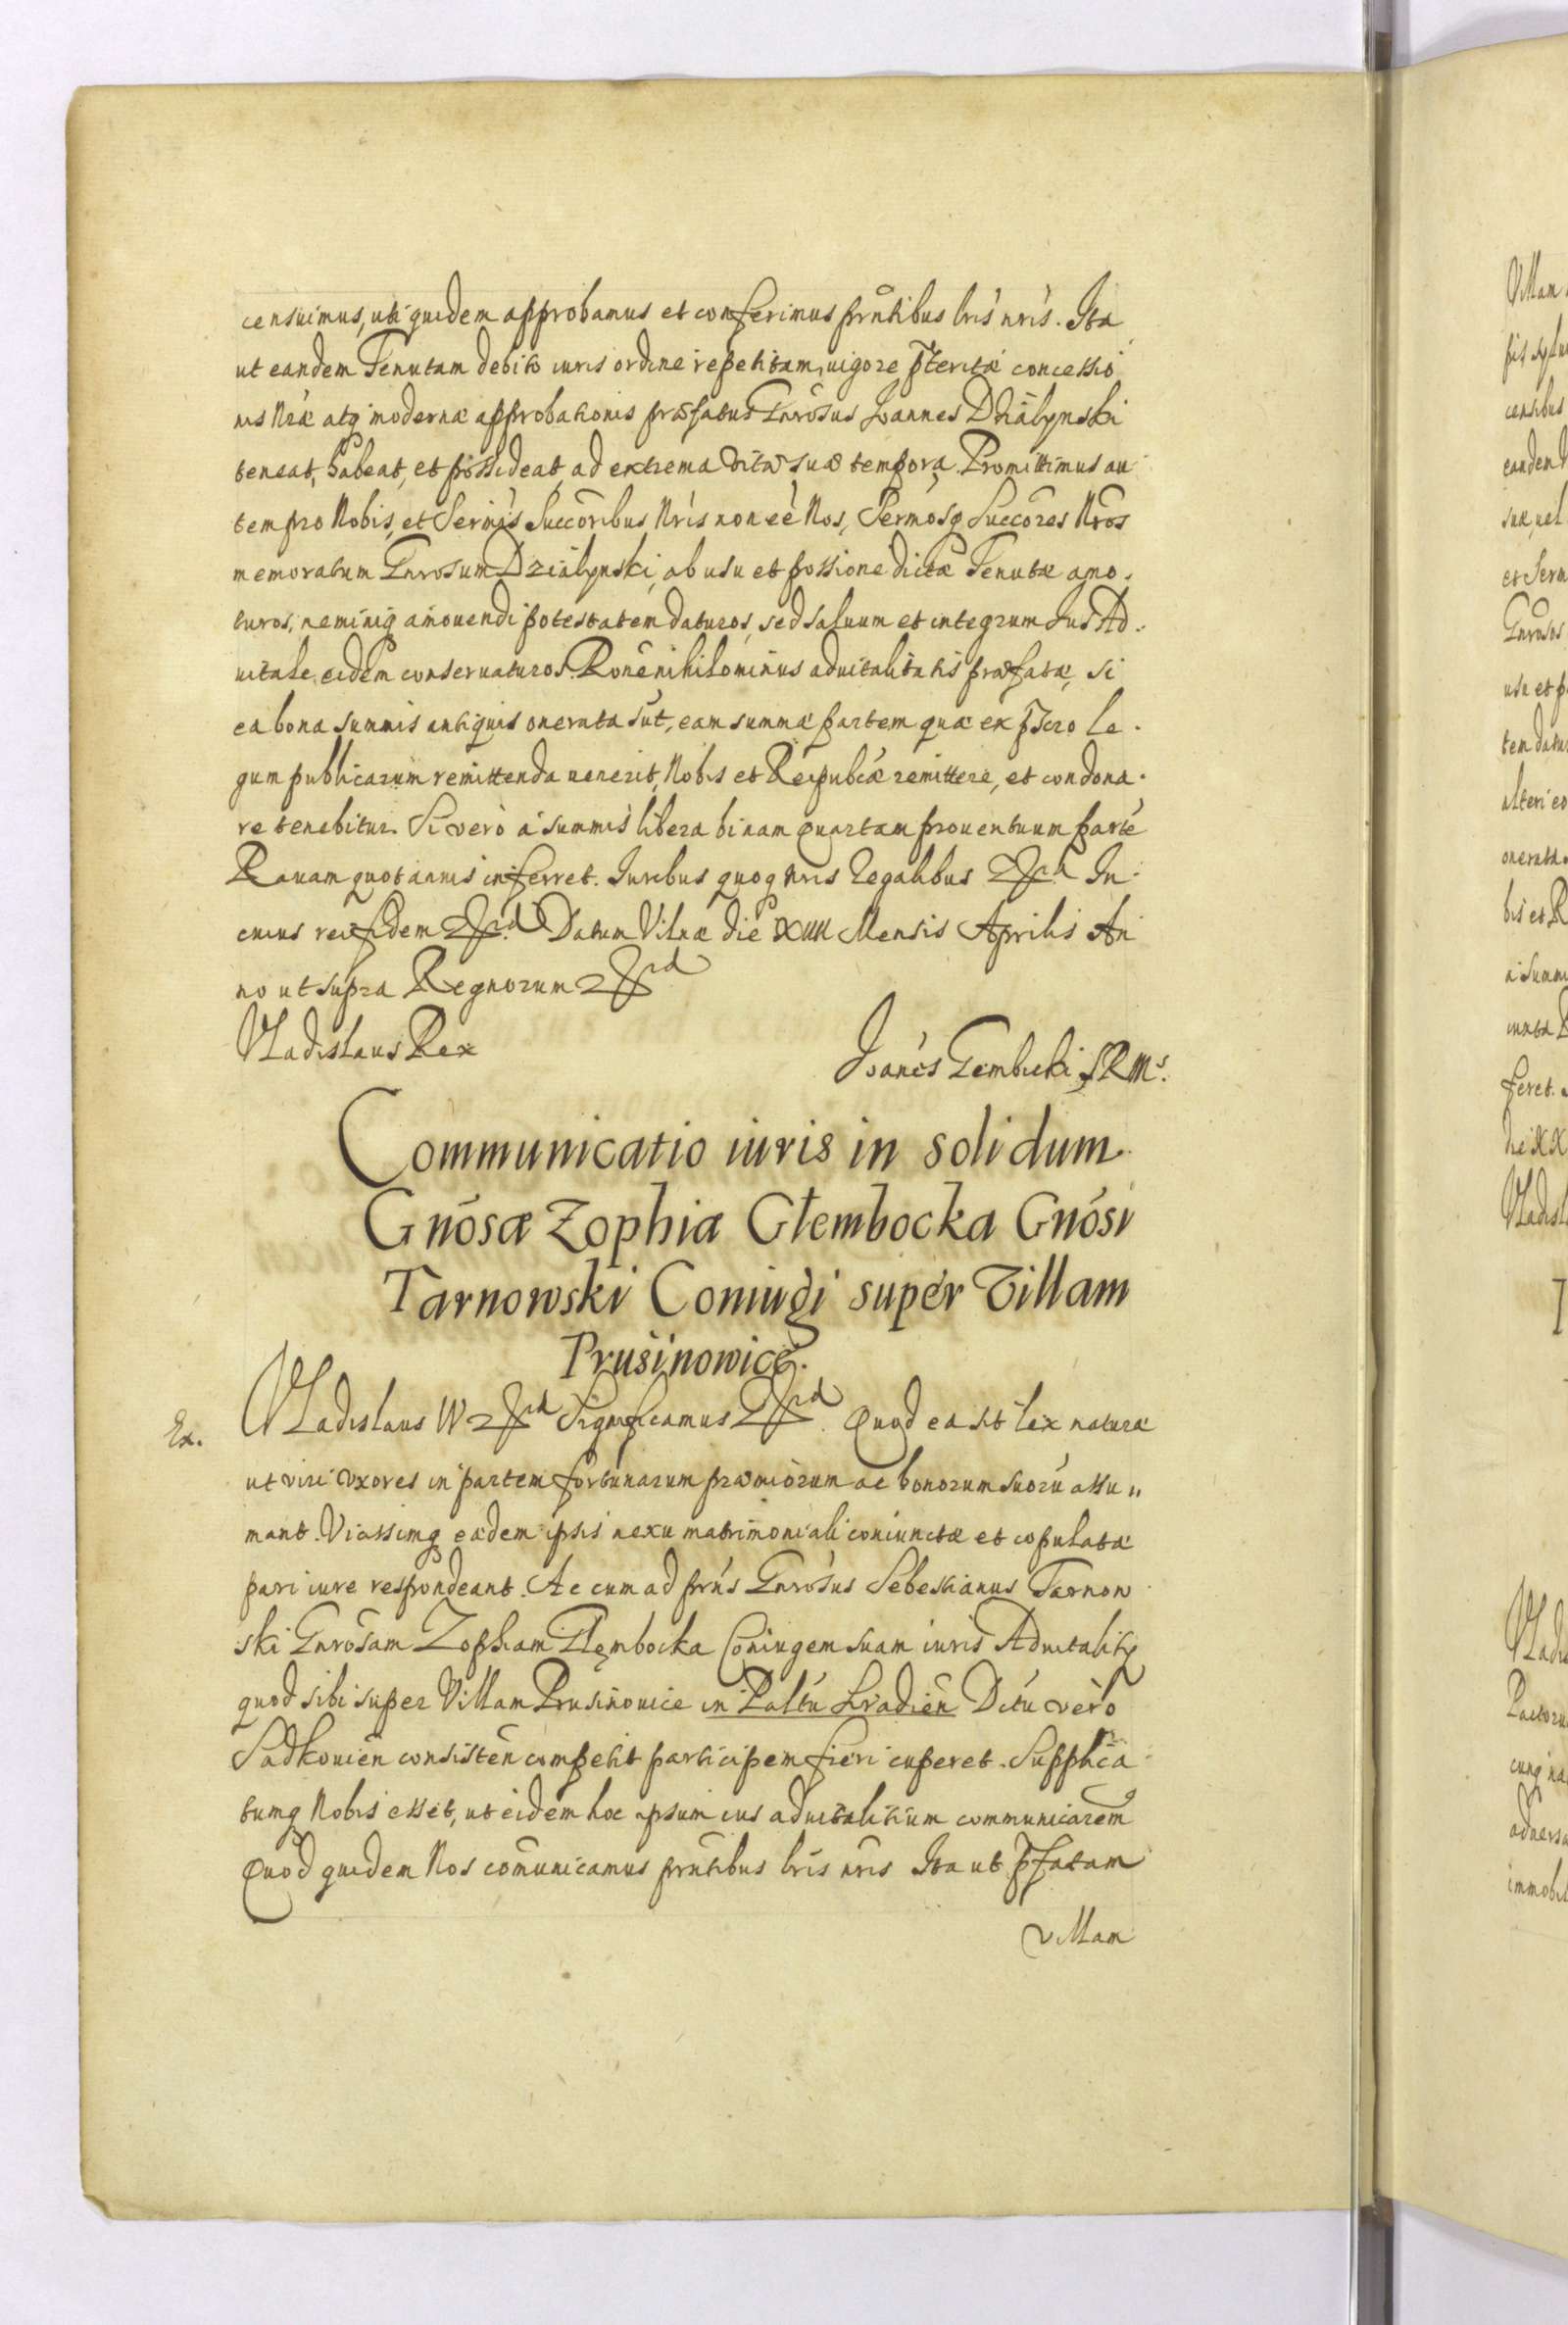 censuimus, uti quidem approbamus et conferimus prñtibus lris nris. Ita
ut eandem Tenutam debito iuris ordine repetitam, uigore pteritæ concessio
nis Nræ atq moderna approbationis præfatus Gnrosus Joannes Działynski
teneat, habeat, et possideat, ad extrema vitæ suæ tempora. Promittimus au
tem pro Nobis, et Sermis Succoribus Nris non eé Nos, Sermosq Succores Nros
memoratum Gnrosum Działynski, ab usu et possione dictæ Tenutæ amo.
turos, neminiq amouendi potestatem daturos, sed saluum et integrum Jus Ad.
uitale eidem conseruaturos. Rone nihilominus aduitalitatis præfatæ, si
ea bona summis antiquis onerata sut, eam summæ partem quæ ex pscro le.
gum publicarum remittenda uenerit, Nobis et Reipubcæ remittere, et condona.
re tenebitur. Si vero á summis libera binam quartam prouentuum parte
Rauam quotannis inferret. Juribus quoq nris Regalibus &c. In
cuius rei fidem &c. Datum Vilnæ die XIIII Mensis Aprilis An
no ut supra Regnorum &c.
Vladislaus Rex
Joanes Gembicki S R Ms.
Communicatio iuris in solidum
Gnosæ Zophiæ Głembocka Gnosi
Tarnowski Coniugi super Villam
Prusinowice.
Ex.
Vladislaus IV &c Significamus &c. Quod ea sit lex naturæ
ut viri vxores in partem fortunarum præmiorum ac bonorum suorú assu"
mant. Vicissimq eædem ipsis nexu matrimoniali coniunctæ et copulatæ
pari iure respondeant. Ac cum ad prns Gnrosus Sebestianus Tarnow
ski Gnrosam Zophiam Głęmbocka Coniugem suam iuris Aduitalitii
quod sibi super Villam Prusinouice in Paltú Siradien Dctú vero
Sadkouien consisten competit participem fieri cuperet. Supplica
tumq Nobis esset, ut eidem hoc ipsum ius aduitalitium communicarem
Quod quidem Nos comunicamus prntibus lris nris Ita ut pfatam
villam